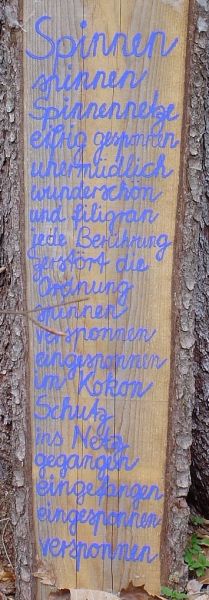 Spinnen
spinnen
Spinnennetze
eifrig gesponnen
unermüdlich
wunderschön
und filigran
jede Berührung
zerstört die
Ordnung
spinnen
versponnen
eingesponnen
im Kokon
Schutz
ins Netz
gegangen
eingefangen
eingesponnen
versponnen